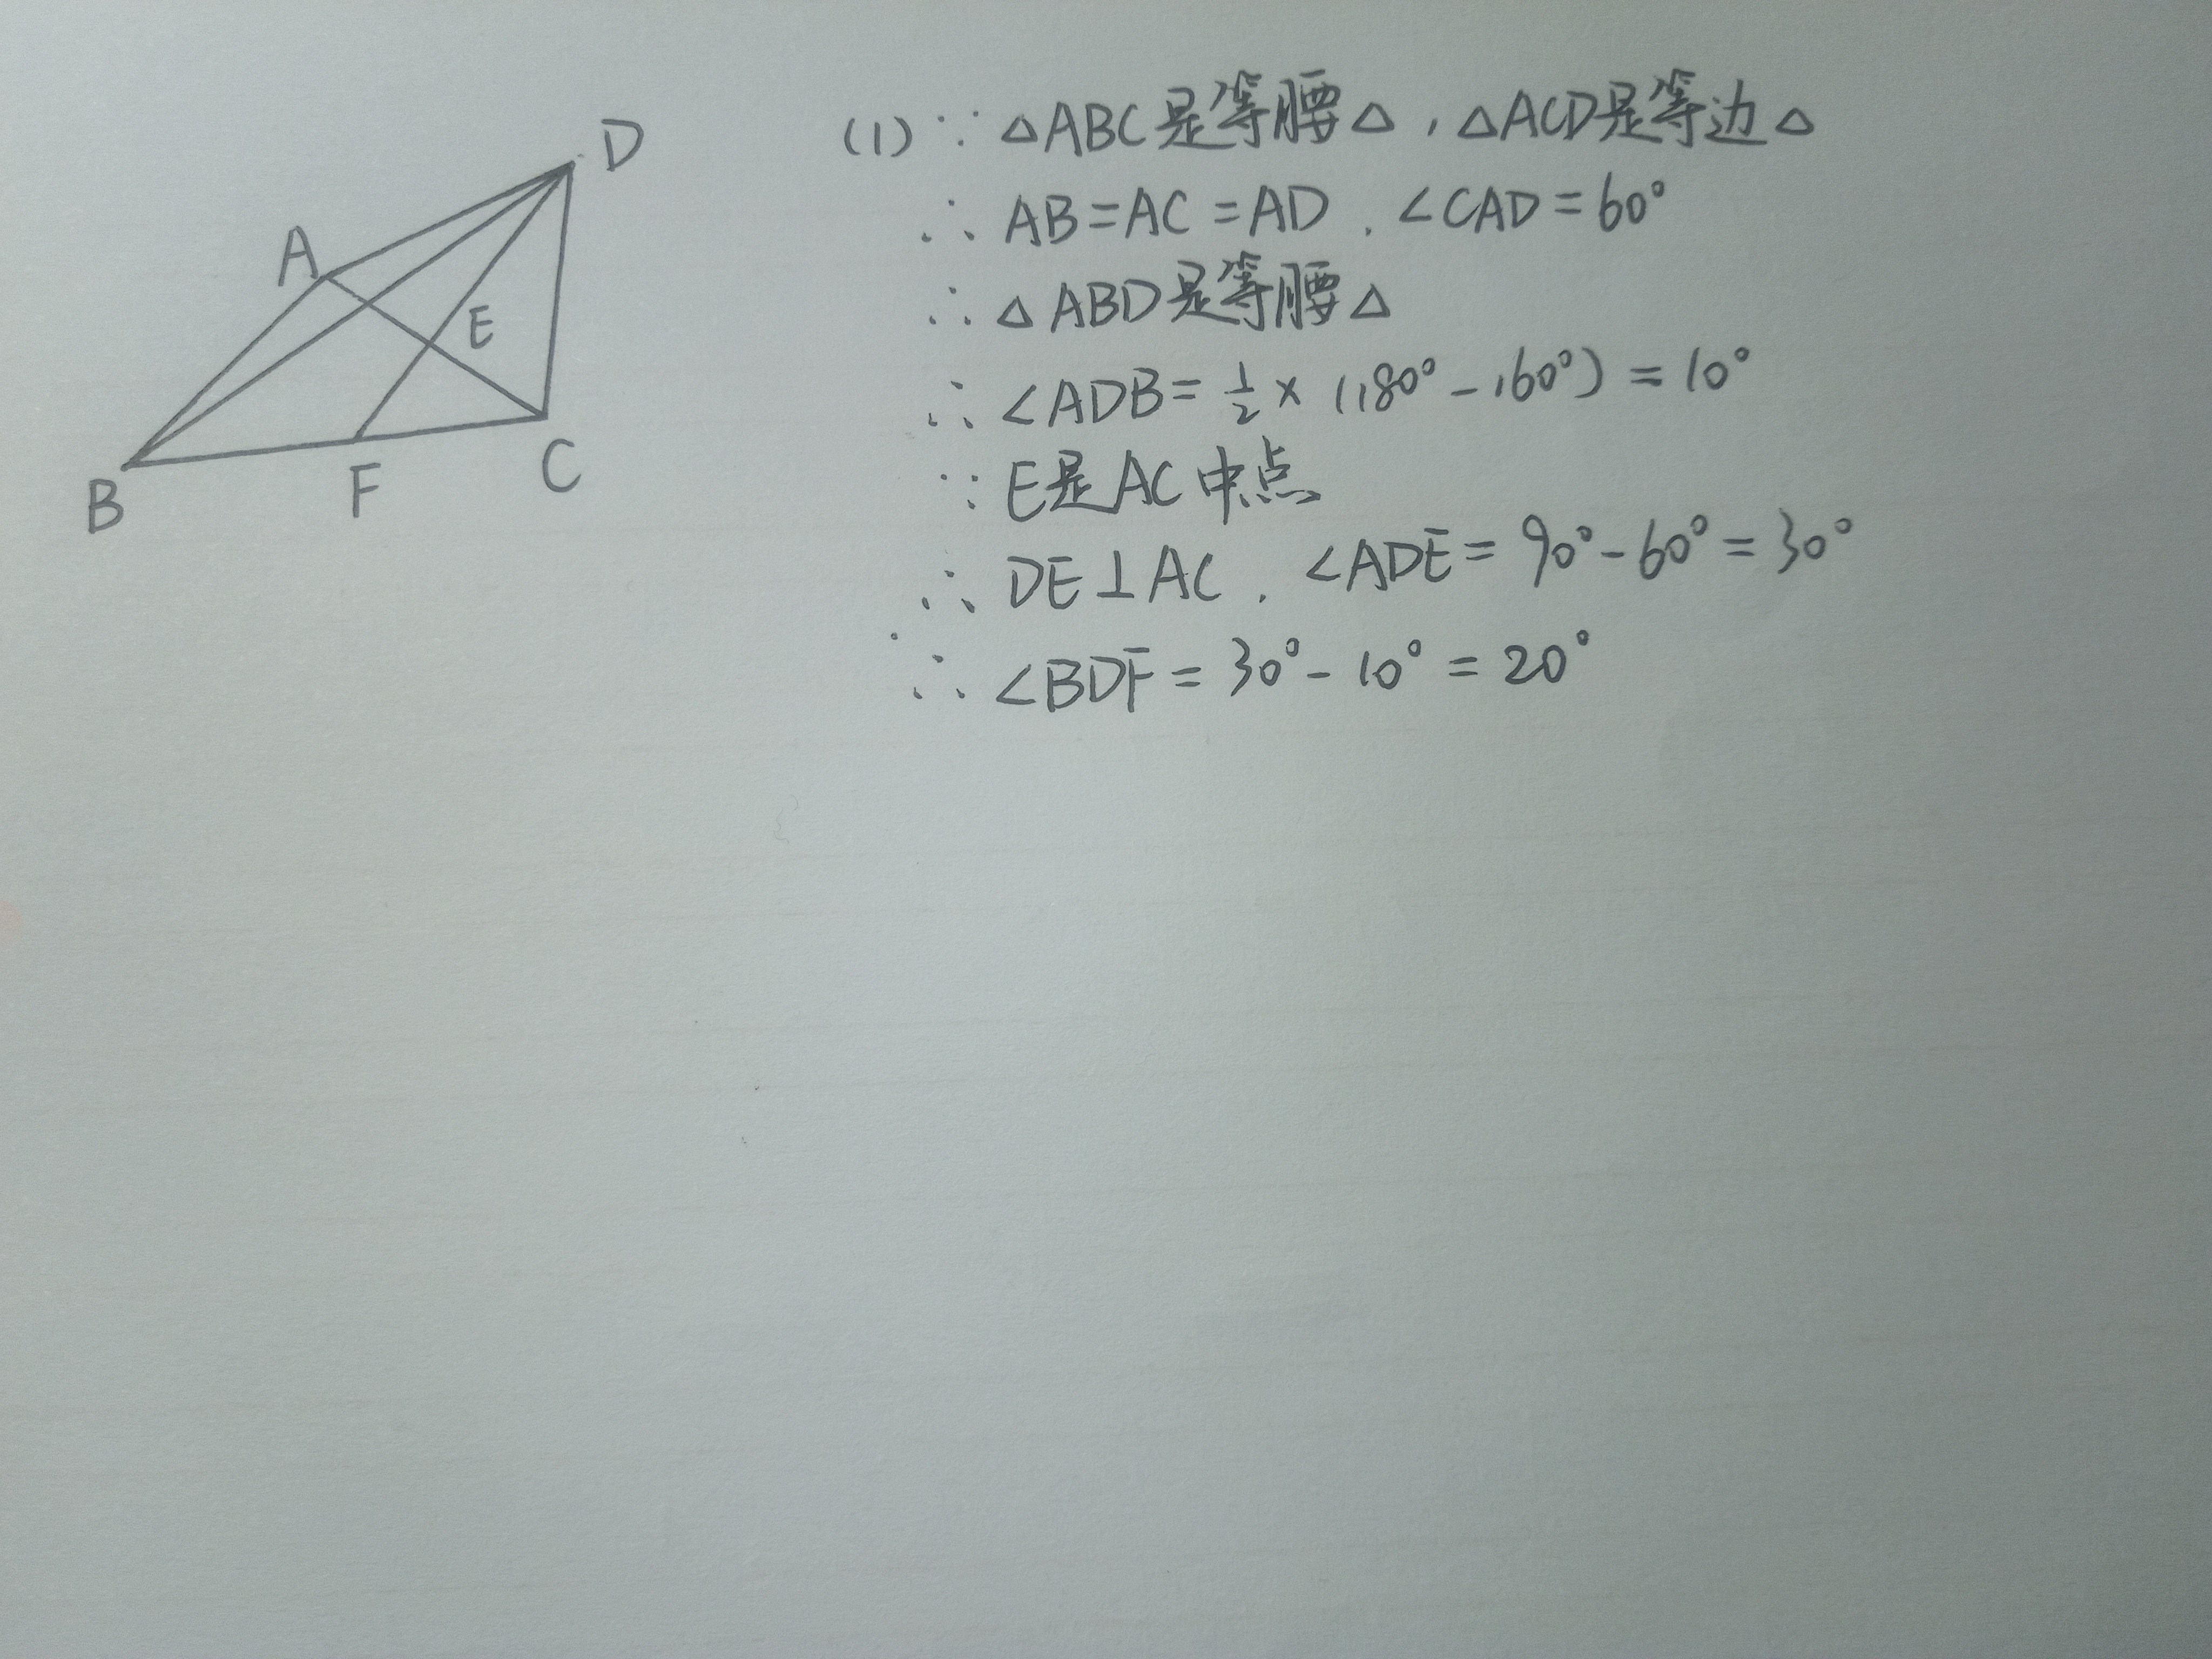 D
A
E
B
F
C
(1) ∵ △ABC是等腰△，△ACD是等边△
∴ AB=AC=AD，∠CAD=60°
∴ △ABD是等腰△
∴ ∠ADB=½×(180°-160°)=10°
∵ E是AC中点
∴ DE⊥AC，∠ADE=90°-60°=30°
∴ ∠BDF=30°-10°=20°